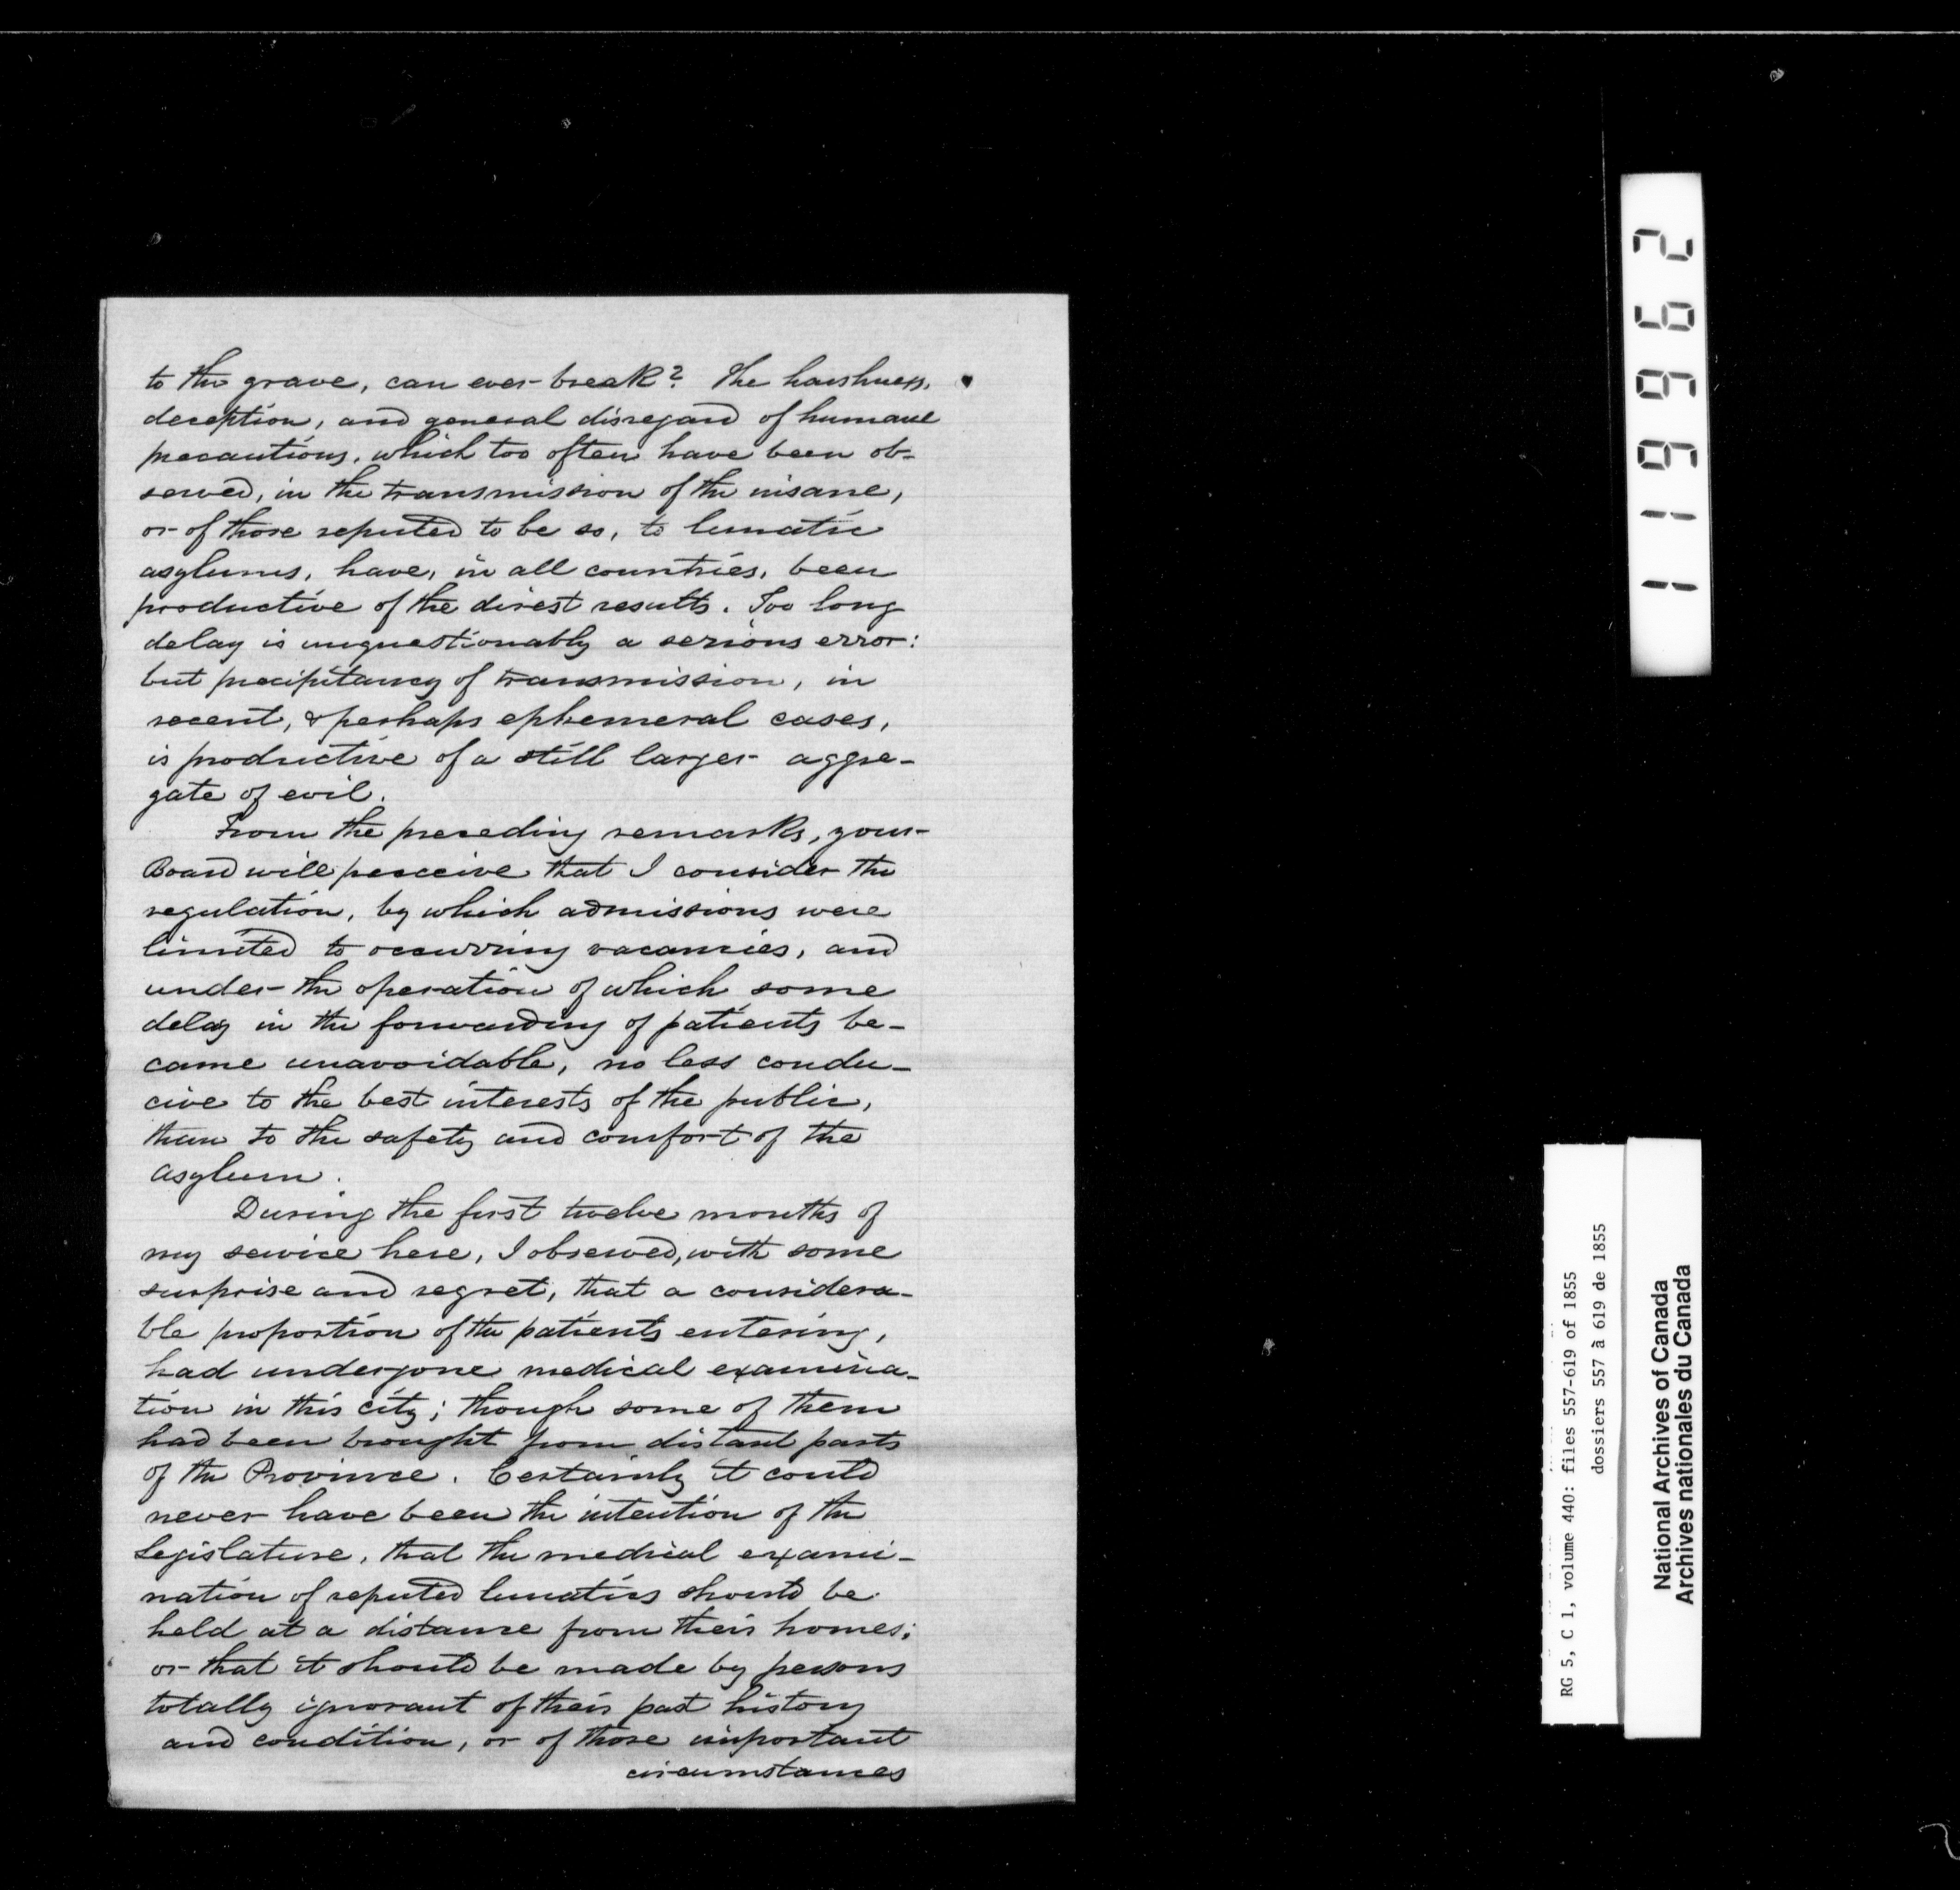 to the grave, can ever break? The harshness,
deception, and general disregard of humane
precautions, which too often have been ob-
served, in the transmission of the insane,
or of those reputed to be so, to lunatic
asylums, have, in all countries, been
productive of the direst results. Too long
delay is unquestionably a serious error:
but precipitancy of transmission, in
recent, & perhaps ephemeral cases,
is productive of a still larger aggre-
gate of evil.
From the preceding remarks, your
Board will perceive that I consider the
regulation, by which admissions were
limited to occurring vacancies, and
under the operation of which some
delay in the forwarding of patients be-
came unavoidable, no less condu-
cive to the best interests of the public,
than to the safety and comfort of the
asylum.
During the first twelve months of
my service here, I observed, with some
surprise and regret, that a considera-
ble proportion of the patients entering,
had undergone medical examina-
tion in this city; though some of them
had been brought from distant parts
of the Province. Certainly it could
never have been the intention of the
Legislature, that the medical exami-
nation of reputed lunatics should be
held at a distance from their homes;
or that it should be made by persons
totally ignorant of their past history
and condition, or of those important
circumstances
119962
RG 5, C 1, volume 440: files 557-619 of 1855
dossiers 557 à 619 de 1855
National Archives of Canada
Archives nationales du Canada